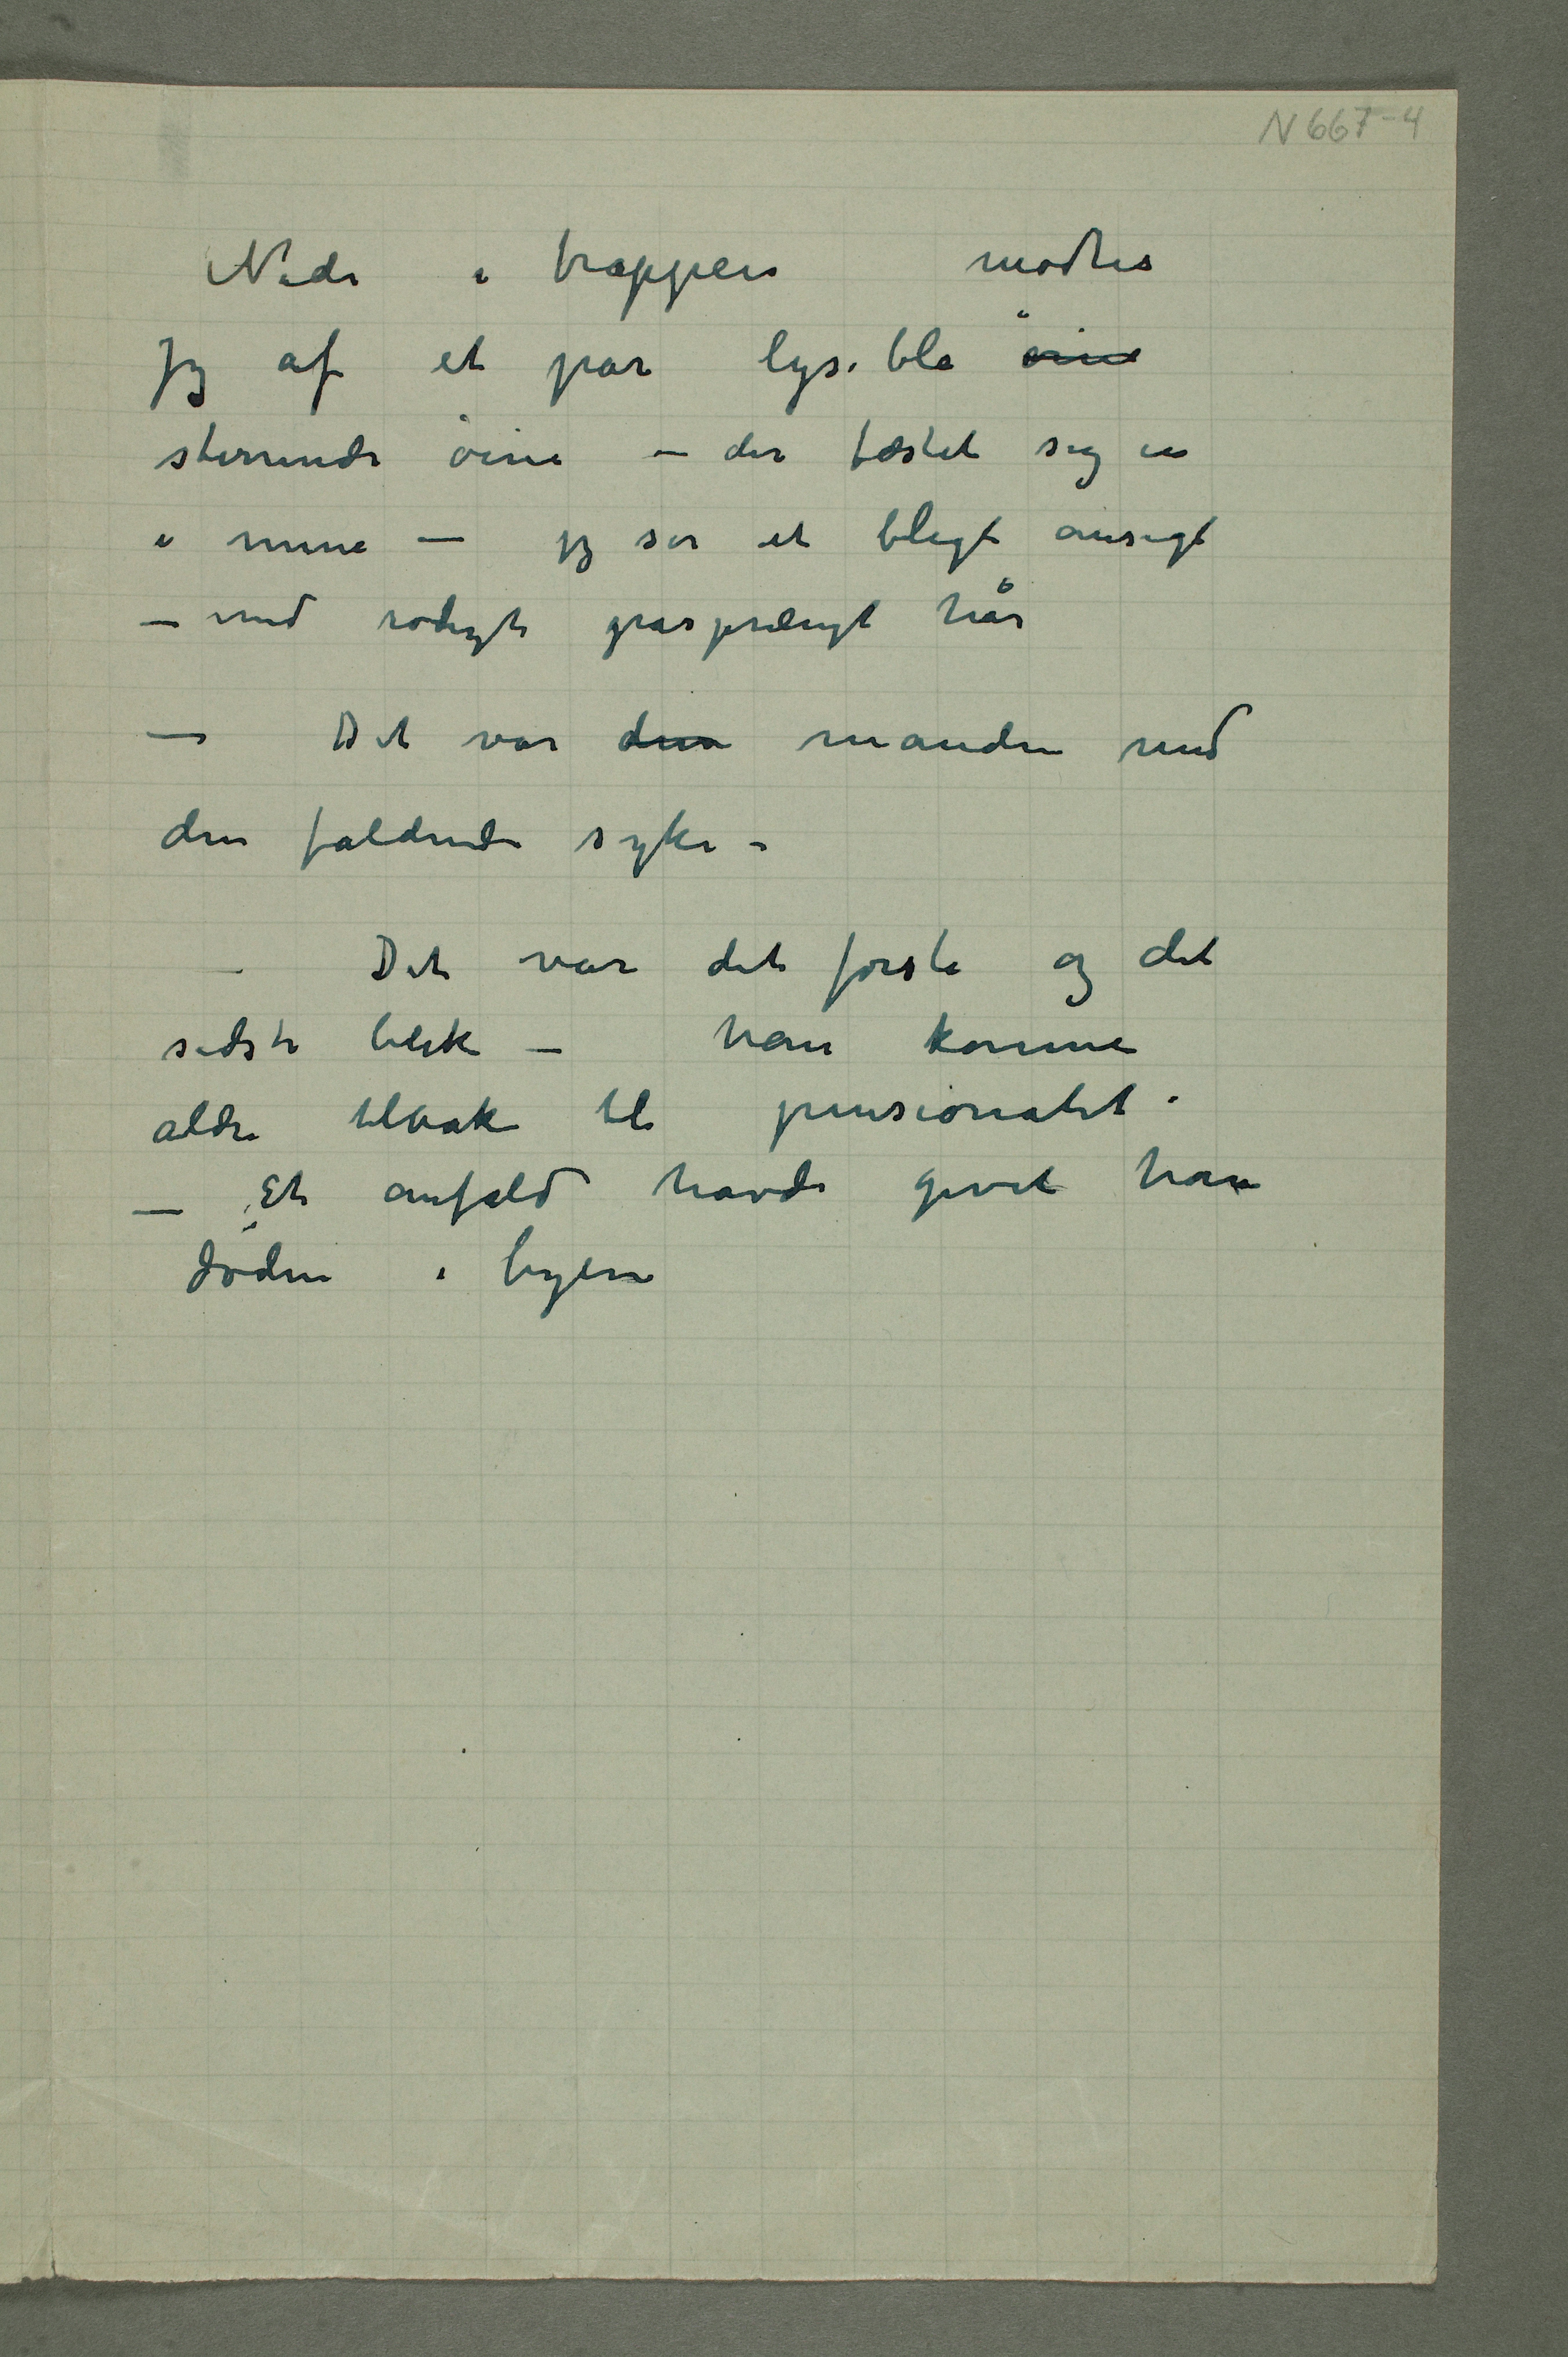 N 667-4
Nede i trappen mødtes
jeg af et par lyseblå øine
stirrende øine – der fæstet sig en
i mine – jeg ser et blegt ansigt
– med rødligt gråsprængt hår
– Det var den manden med
den faldende syke –
– Det var det første og det
sidste blik – han komme
aldri tilbake til pensionatet.
– Et anfald havde givet ham
døden i byen